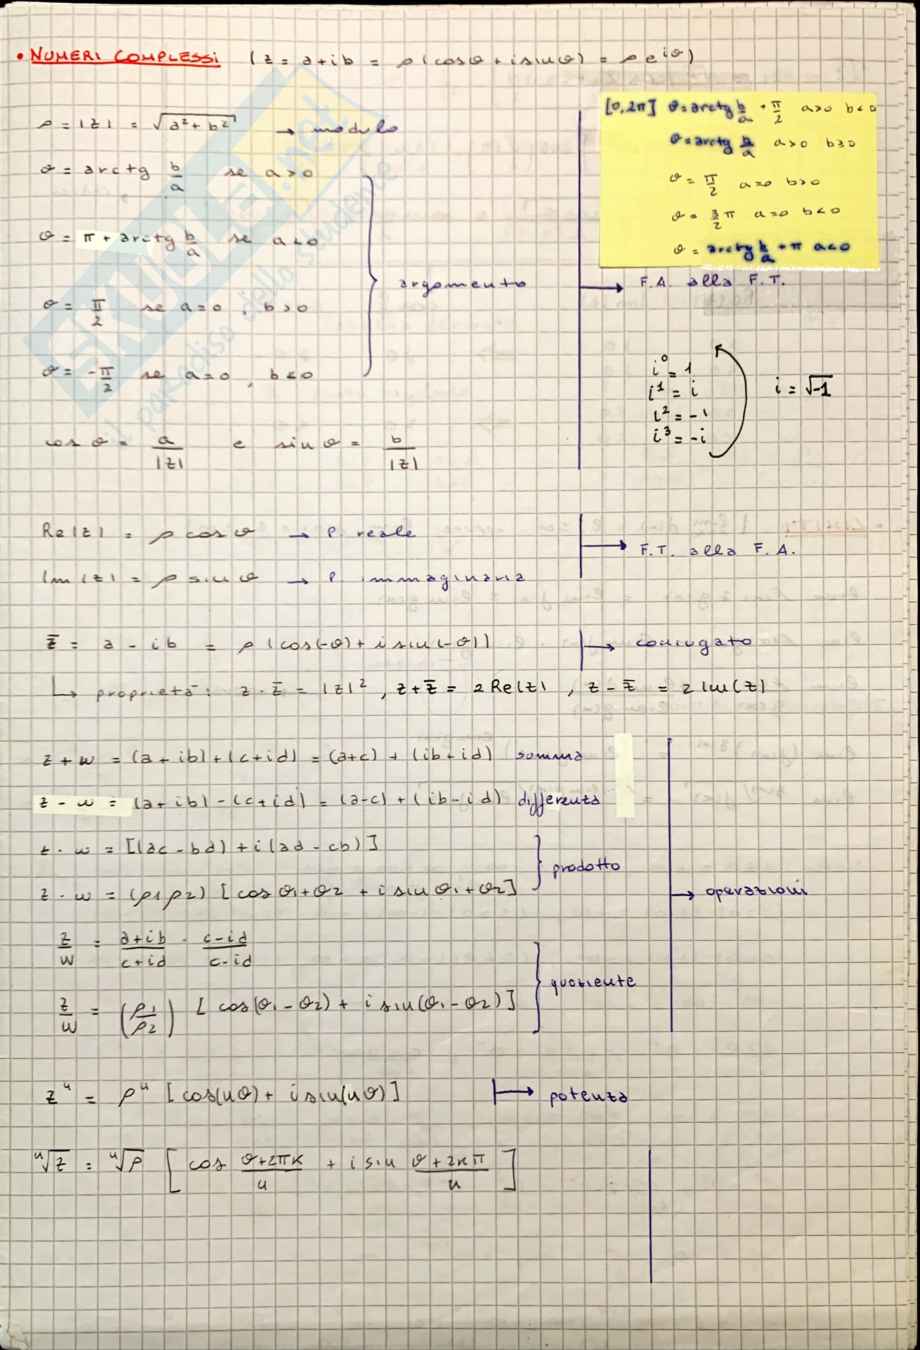 • NUMERI COMPLESSI (z = a+ib = ρ(cosθ + i sinθ) = ρe^{iθ})
ρ = |z| = √(a²+b²) → modulo
θ = arctg b/a se a>0
θ = π + arctg b/a se a<0
θ = π/2 se a=0, b>0
θ = -π/2 se a=0, b<0
argomento
cos θ = a/|z| e sin θ = b/|z|
[0,2π] θ = arctg b/a + π/2 a>0 b<0
θ = arctg b/a a>0 b≥0
θ = π/2 a=0 b>0
θ = 3/2 π a=0 b<0
θ = arctg b/a + π a<0
→ F.A. alla F.T.
i⁰ = 1
i¹ = i
i² = -1
i³ = -i
i = √-1
Re(z) = ρ cos θ → P. reale
Im(z) = ρ sin θ → P. immaginaria
→ F.T. alla F.A.
z̄ = a - ib = ρ(cos(-θ) + i sin(-θ)) → coniugato
↳ proprietà: z · z̄ = |z|², z + z̄ = 2Re(z), z - z̄ = 2Im(z)
z + w = (a+ib)+(c+id) = (a+c) + (ib+id) somma
z - w = (a+ib)-(c+id) = (a-c) + (ib-id) differenza
z · w = [(ac-bd)+i(ad-cb)]
z · w = (ρ1ρ2) [cos θ1+θ2 + i sin θ1+θ2]
prodotto
→ operazioni
z/w = a+ib/c+id · c-id/c-id
z/w = (ρ1/ρ2) [cos(θ1-θ2) + i sin(θ1-θ2)]
quoziente
zⁿ = ρⁿ [cos(nθ) + i sin(nθ)] → potenza
ⁿ√z = ⁿ√ρ [cos θ+2πk/n + i sin θ+2kπ/n]
SKUOLA.net
il paradiso dello studente